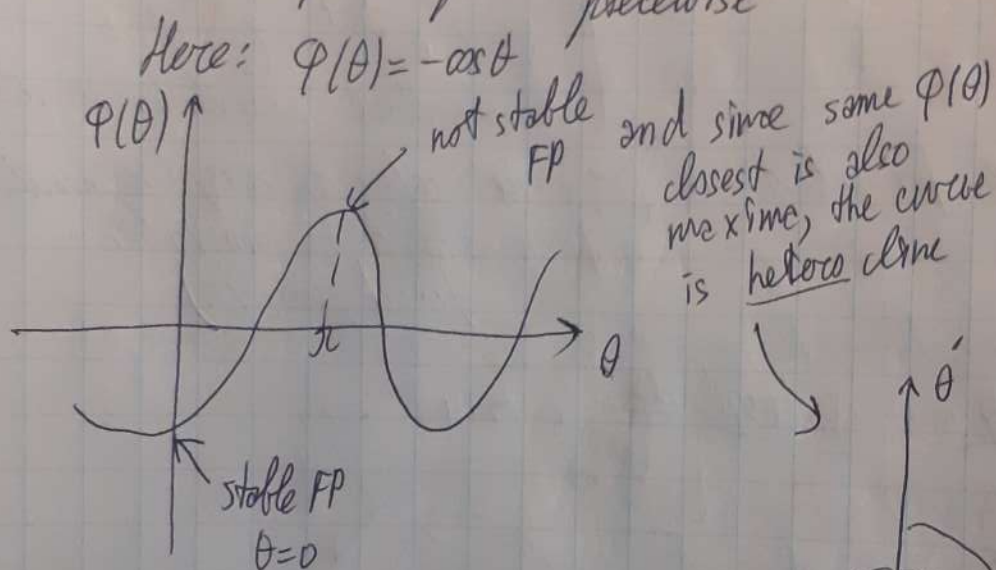 piecewise
Here: φ(θ)=-cosθ
φ(θ)
not stable
FP
and since same φ(θ)
closest is also
maxime, the curve
is hetero cline
π
θ
θ̇
stable FP
θ=0